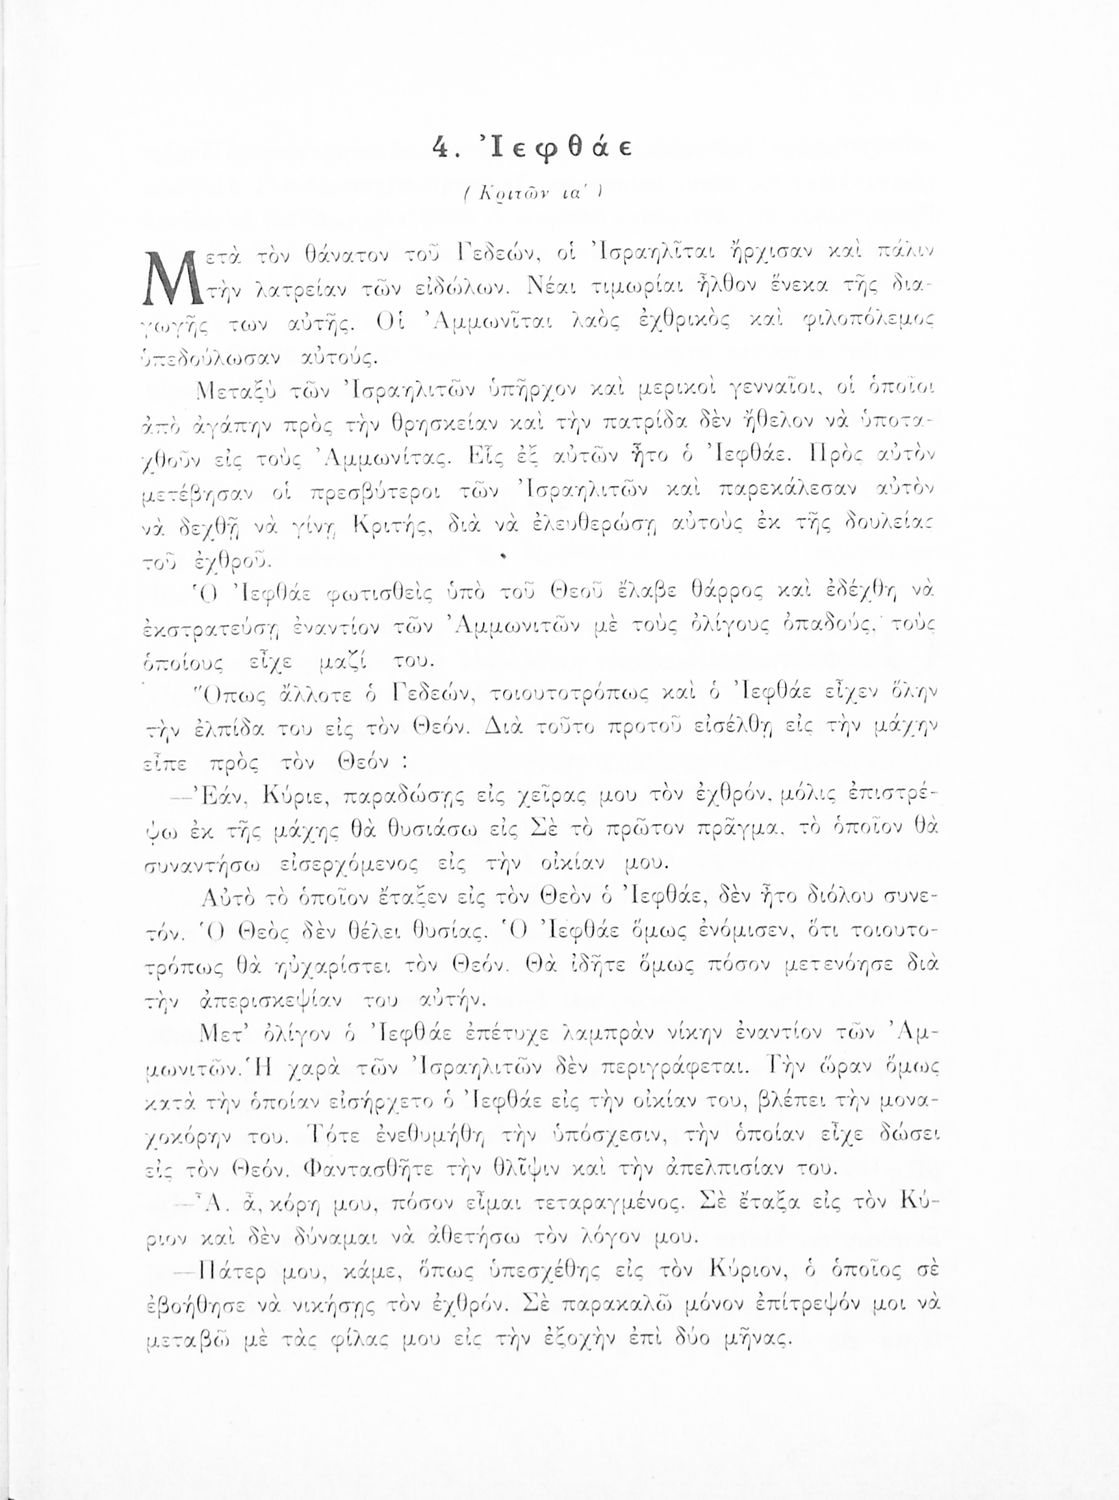 4. Ἰεφθάε
( Κριτῶν ια΄ )
Μετὰ τὸν θάνατον τοῦ Γεδεών, οἱ Ἰσραηλῖται ἤρχισαν καὶ πάλιν
τὴν λατρείαν τῶν εἰδώλων. Νέαι τιμωρίαι ἦλθον ἕνεκα τῆς δια-
γωγῆς των αὐτῆς. Οἱ Ἀμμωνῖται λαὸς ἐχθρικὸς καὶ φιλοπόλεμος
ὑπεδούλωσαν αὐτούς.
Μεταξὺ τῶν Ἰσραηλιτῶν ὑπῆρχον καὶ μερικοὶ γενναῖοι, οἱ ὁποῖοι
ἀπὸ ἀγάπην πρὸς τὴν θρησκείαν καὶ τὴν πατρίδα δὲν ἤθελον νὰ ὑποτα-
χθοῦν εἰς τοὺς Ἀμμωνίτας. Εἷς ἐξ αὐτῶν ἦτο ὁ Ἰεφθάε. Πρὸς αὐτὸν
μετέβησαν οἱ πρεσβύτεροι τῶν Ἰσραηλιτῶν καὶ παρεκάλεσαν αὐτὸν
νὰ δεχθῇ νὰ γίνῃ Κριτής, διὰ νὰ ἐλευθερώσῃ αὐτοὺς ἐκ τῆς δουλείας
τοῦ ἐχθροῦ.
Ὁ Ἰεφθάε φωτισθεὶς ὑπὸ τοῦ Θεοῦ ἔλαβε θάρρος καὶ ἐδέχθη νὰ
ἐκστρατεύσῃ ἐναντίον τῶν Ἀμμωνιτῶν μὲ τοὺς ὀλίγους ὀπαδούς, τοὺς
ὁποίους εἶχε μαζί του.
Ὅπως ἄλλοτε ὁ Γεδεών, τοιουτοτρόπως καὶ ὁ Ἰεφθάε εἶχεν ὅλην
τὴν ἐλπίδα του εἰς τὸν Θεόν. Διὰ τοῦτο προτοῦ εἰσέλθῃ εἰς τὴν μάχην
εἶπε πρὸς τὸν Θεόν :
—Ἐάν, Κύριε, παραδώσῃς εἰς χεῖρας μου τὸν ἐχθρόν, μόλις ἐπιστρέ-
ψω ἐκ τῆς μάχης θὰ θυσιάσω εἰς Σὲ τὸ πρῶτον πρᾶγμα, τὸ ὁποῖον θὰ
συναντήσω εἰσερχόμενος εἰς τὴν οἰκίαν μου.
Αὐτὸ τὸ ὁποῖον ἔταξεν εἰς τὸν Θεὸν ὁ Ἰεφθάε, δὲν ἦτο διόλου συνε-
τόν. Ὁ Θεὸς δὲν θέλει θυσίας. Ὁ Ἰεφθάε ὅμως ἐνόμισεν, ὅτι τοιουτο-
τρόπως θὰ ηὐχαρίστει τὸν Θεόν. Θὰ ἰδῆτε ὅμως πόσον μετενόησε διὰ
τὴν ἀπερισκεψίαν του αὐτήν.
Μετ' ὀλίγον ὁ Ἰεφθάε ἐπέτυχε λαμπρὰν νίκην ἐναντίον τῶν Ἀμ-
μωνιτῶν. Ἡ χαρὰ τῶν Ἰσραηλιτῶν δὲν περιγράφεται. Τὴν ὥραν ὅμως
κατὰ τὴν ὁποίαν εἰσήρχετο ὁ Ἰεφθάε εἰς τὴν οἰκίαν του, βλέπει τὴν μονα-
χοκόρην του. Τότε ἐνεθυμήθη τὴν ὑπόσχεσιν, τὴν ὁποίαν εἶχε δώσει
εἰς τὸν Θεόν. Φαντασθῆτε τὴν θλῖψιν καὶ τὴν ἀπελπισίαν του.
—Ἆ, ἆ, κόρη μου, πόσον εἶμαι τεταραγμένος. Σὲ ἔταξα εἰς τὸν Κύ-
ριον καὶ δὲν δύναμαι νὰ ἀθετήσω τὸν λόγον μου.
—Πάτερ μου, κάμε, ὅπως ὑπεσχέθης εἰς τὸν Κύριον, ὁ ὁποῖος σὲ
ἐβοήθησε νὰ νικήσῃς τὸν ἐχθρόν. Σὲ παρακαλῶ μόνον ἐπίτρεψόν μοι νὰ
μεταβῶ μὲ τὰς φίλας μου εἰς τὴν ἐξοχὴν ἐπὶ δύο μῆνας.